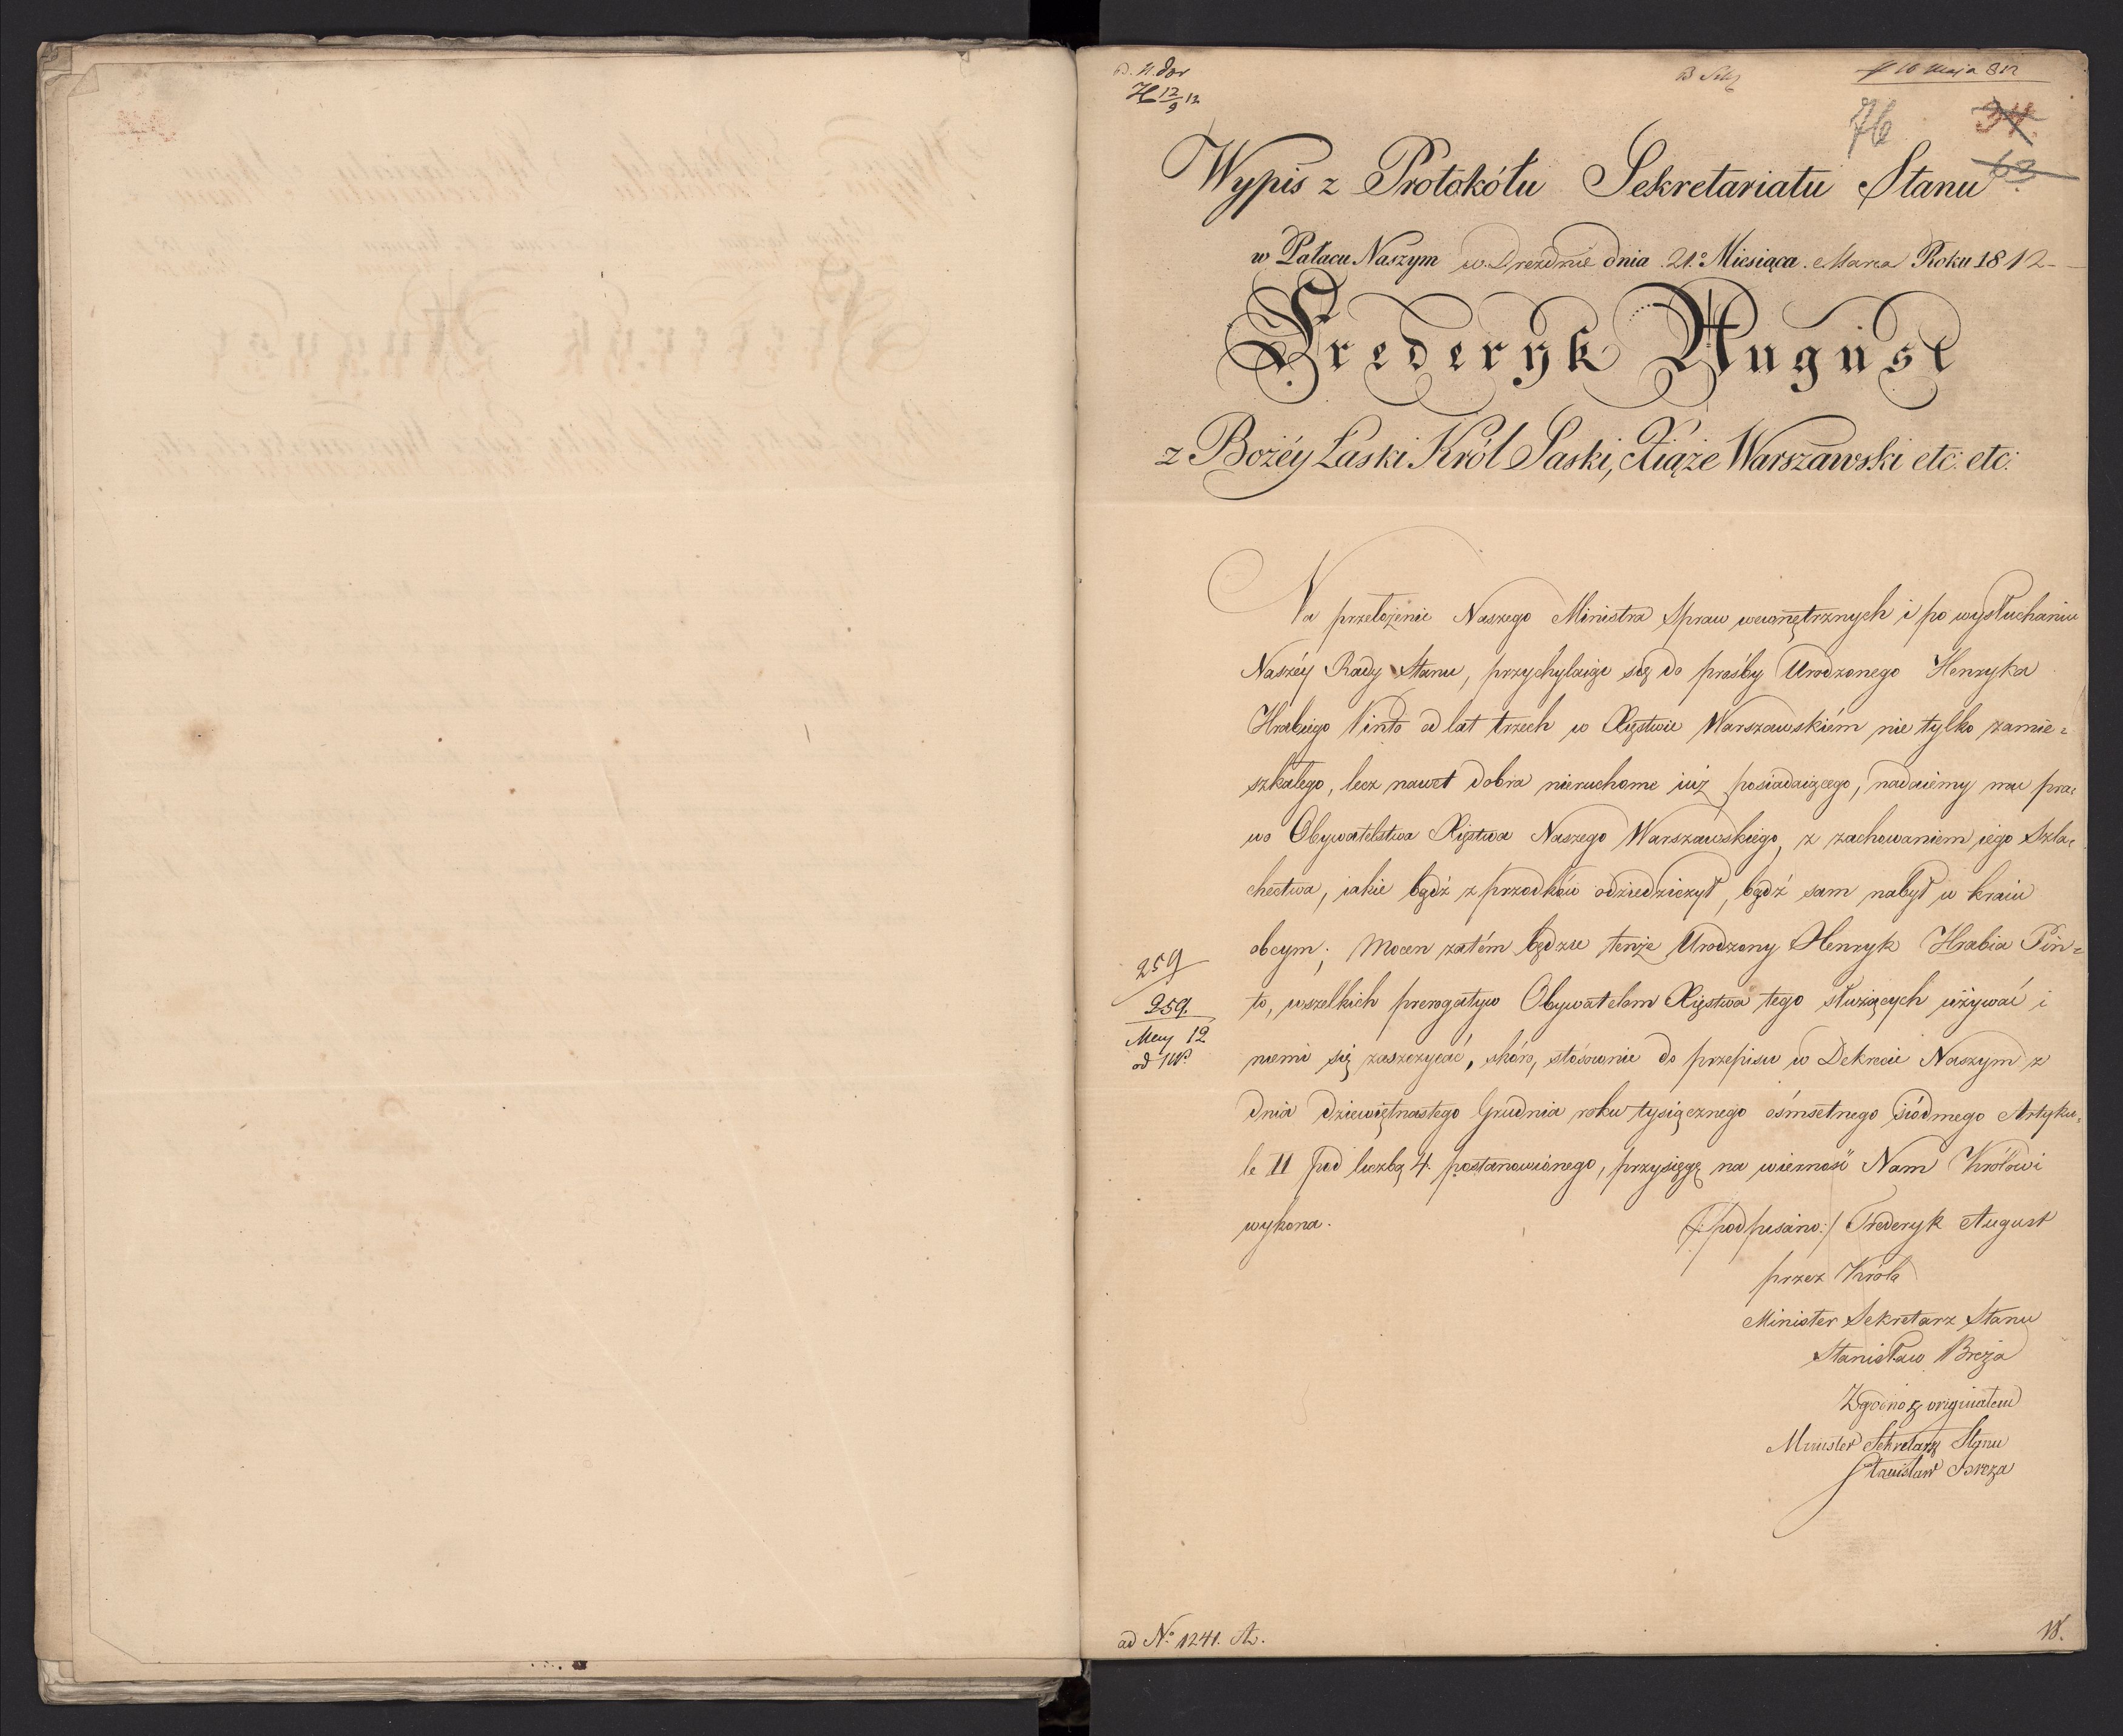 H 12/9 12
16 Maja 812
76
34.
63
Wypis z Protokółu Sekretariatu Stanu
w Pałacu Naszym w Dreznie dnia 21º Miesiąca Marca Roku 1812
Frederyk August
z Bożéy Łaski Król Saski, Xiąże Warszawski etc. etc.
Na przełożenie Naszego Ministra Spraw wewnętrznych i po wysłuchaniu
Naszéy Rady Stanu, przychylaiąc się do prośby Urodzonego Henryka
Hrabiego Pinto od lat trzech w Xięstwie Warszawskiém nie tylko zamie=
szkałego, lecz nawet dobra nieruchome iuż posiadaiącego, nadaiemy mu pra=
wo Obywatelstwa Xięstwa Naszego Warszawskiego, z zachowaniem iego Szla=
chectwa, iakie bądź z przodków odziedziczył, bądź sam nabył w kraiu
obcym; Mocen zatém będzie tenże Urodzony Henryk Hrabia Pin=
to, wszelkich prerogatyw Obywatelom Xięstwa tego służących używać i
niemi się zaszczycać, skóro, stósownie do przepisu w Dekrecie Naszym z
dnia dziewiętnastego Grudnia roku tysiącznego ośmsetnego siódmego Artyku=
le II pod liczbą 4. postanowionego, przysięgę na wierność Nam Królowi
wykona.
/:podpisano:/ Frederyk August
przez Króla
Minister Sekretarz Stanu
Stanisław Breza
Zgodno z originałem
Minister Sekretarz Stanu
Stanisław Breza
259
259.
May 12
ad Nº 1241.
18.